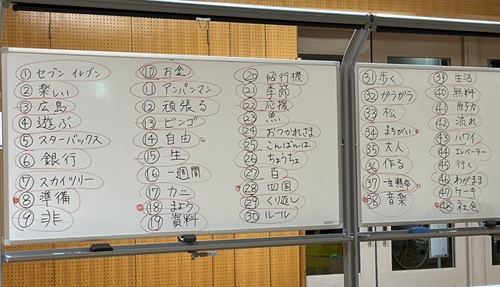 ① セブン イレブン
② 楽しい
③ 広島
④ 遊ぶ
⑤ スターバックス
⑥ 銀行
⑦ スカイツリー
⑧ 準備
⑨ 非
⑩ お金
⑪ アンパンマン
⑫ 頑張る
⑬ ビンゴ
⑭ 自由
⑮ 生
⑯ 一週間
⑰ カニ
⑱ まよう
⑲ 資料
⑳ 飛行機
㉑ 季節
㉒ 応援
㉓ 魚
㉔ おつかれさま
㉕ こんばんは
㉖ ちょうちょ
㉗ 白
㉘ 四国
㉙ くり返し
㉚ ルール
㉛ 歩く
㉜ がらがら
㉝ 松
㉞ まちがい
㉟ 大人
㊱ 作る
㊲ 一生懸命
㊳ 音楽
㊴ 生活
㊵ 無料
㊶ 原子力
㊷ 流れ
㊸ ハワイ
㊹ エレベーター
㊺ 行く
㊻ わがまま
㊼ ケーキ
㊽ 社会